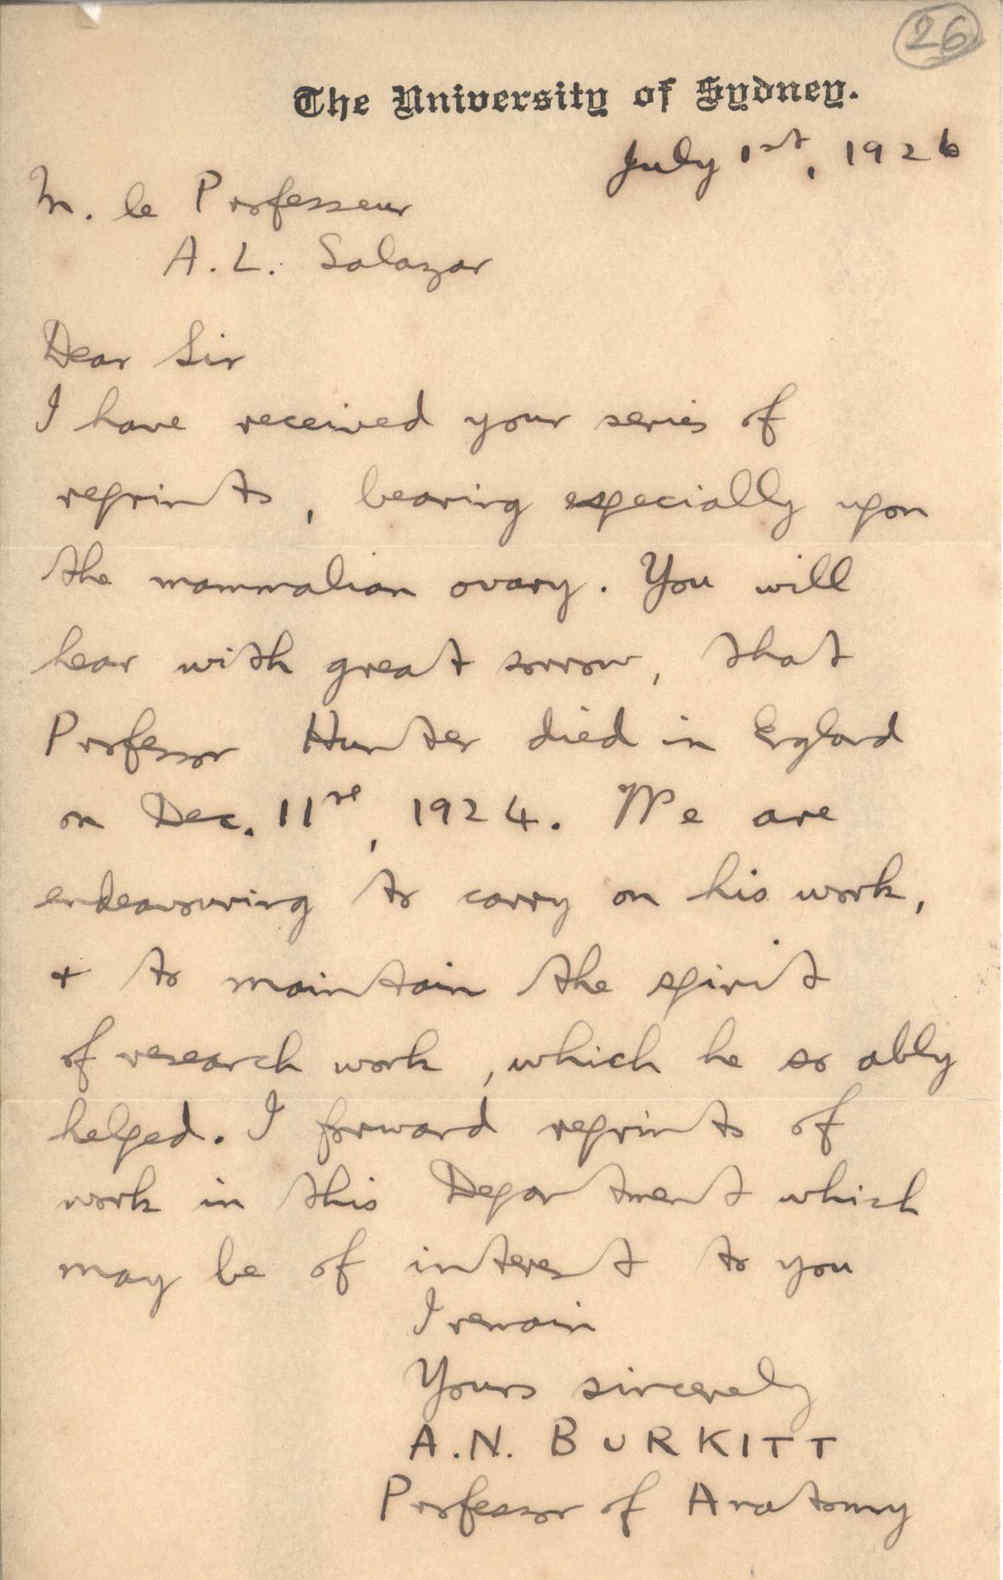 26
The University of Sydney.
July 1st, 1926
M. le Professeur
A. L. Salazar
Dear Sir
I have received your series of
reprints, bearing especially upon
the mammalian ovary. You will
hear with great sorrow, that
Professor Hunter died in England
on Dec. 11re, 1924. We are
endeavouring to carry on his work,
+ to maintain the spirit
of research work, which he so ably
helped. I forward reprints of
work in this Department which
may be of interest to you
I remain
Yours sincerely
A.N. BURKITT
Professor of Anatomy